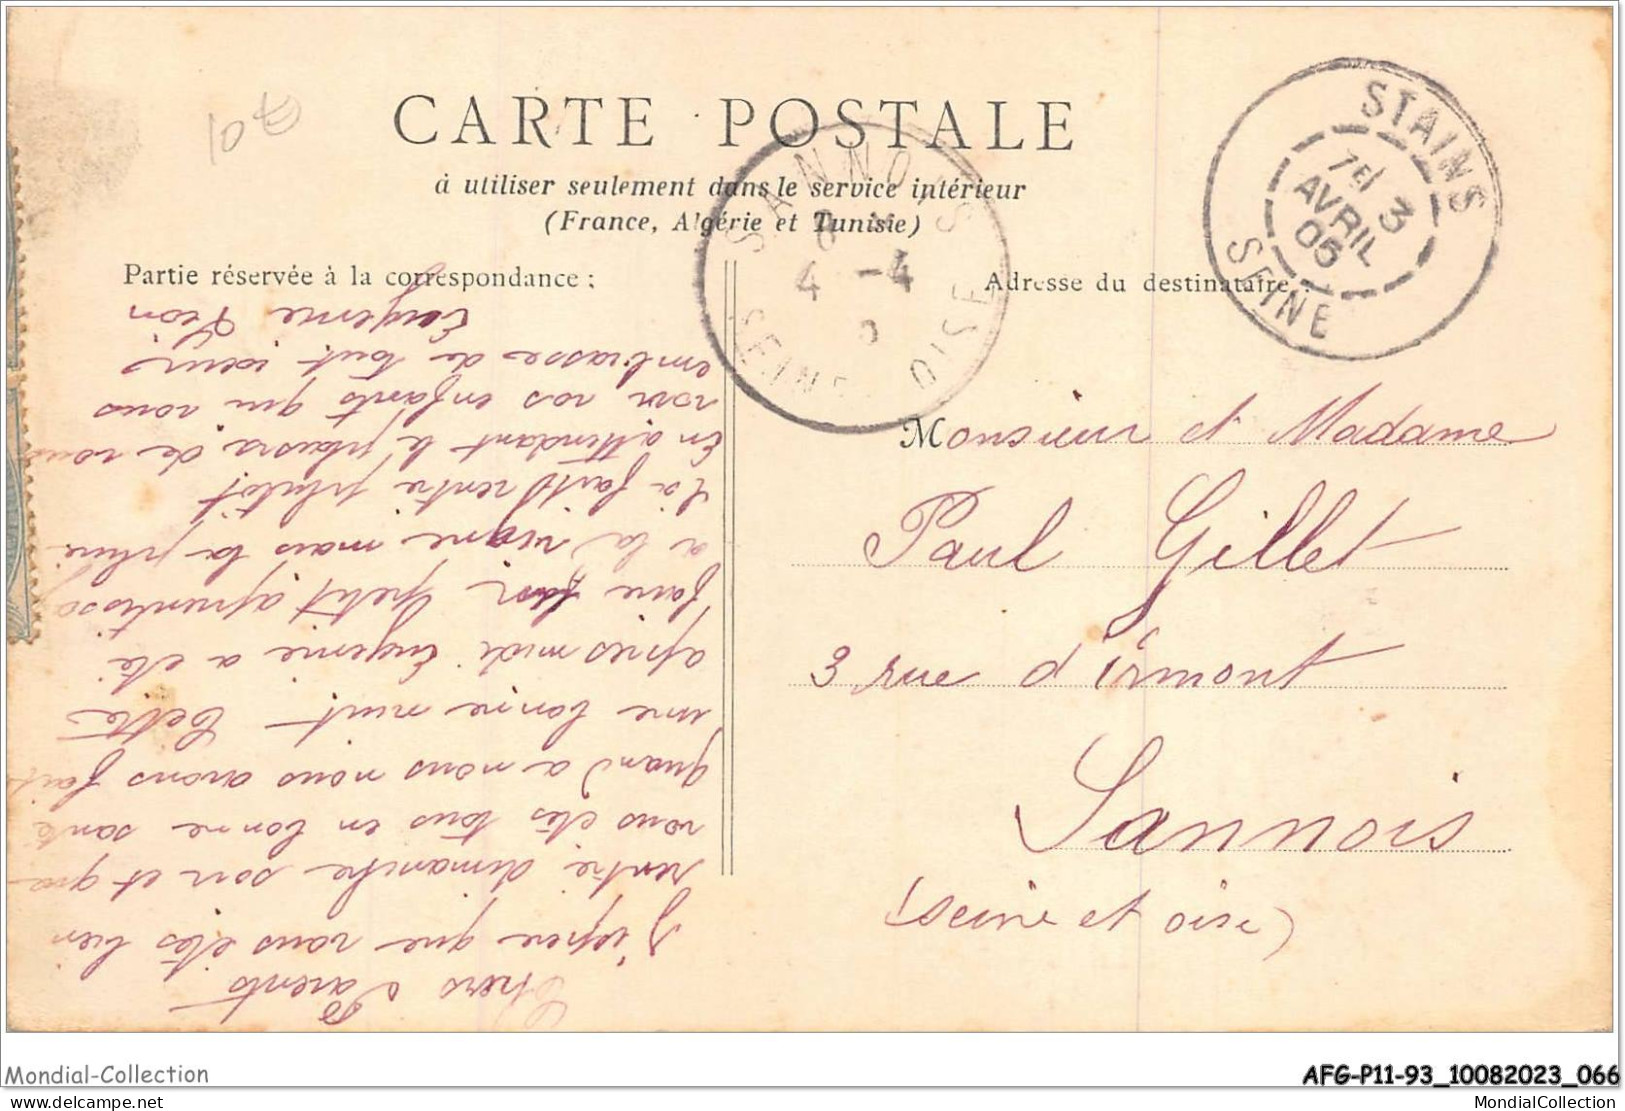 CARTE POSTALE
à utiliser seulement dans le service intérieur
(France, Algérie et Tunisie)
Partie réservée à la correspondance :
Adresse du destinataire :
STAINS
7E 3
AVRIL
05
SEINE
SANNOIS
6
4 -4
SEINE OISE
10€
Monsieur et Madame
Paul Gillet
3 rue d'irmont
Sannois
(seine et oise)
Chers Parents
J'espère que vous etes bien
rentré dimanche soir et que
vous etes tous en bonne santé
quand a nous nous avons fait
une bonne nuit Cette
apres midi Eugenie a eté
faire son petit aprentissa
a la vigne mais la pluie
l'a fait rentré plutôt
En attendant le plaisir de vous
voir vos enfants qui vous
embrasse de tout cœur
Eugenie Léon
Mondial-Collection
AFG-P11-93_10082023_066
delcampe.net
MondialCollection